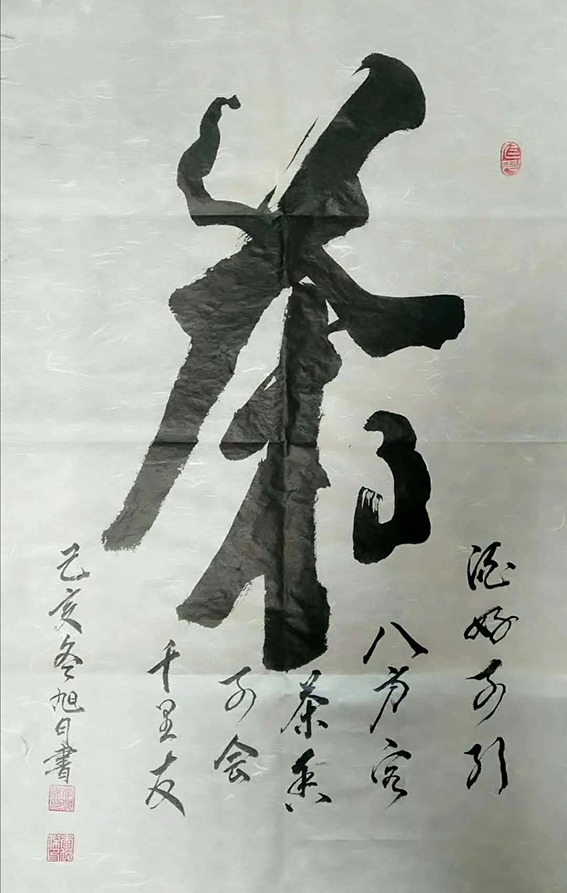 茶
酒好可引
八方客
茶香
可会
千里友
己亥冬旭日書